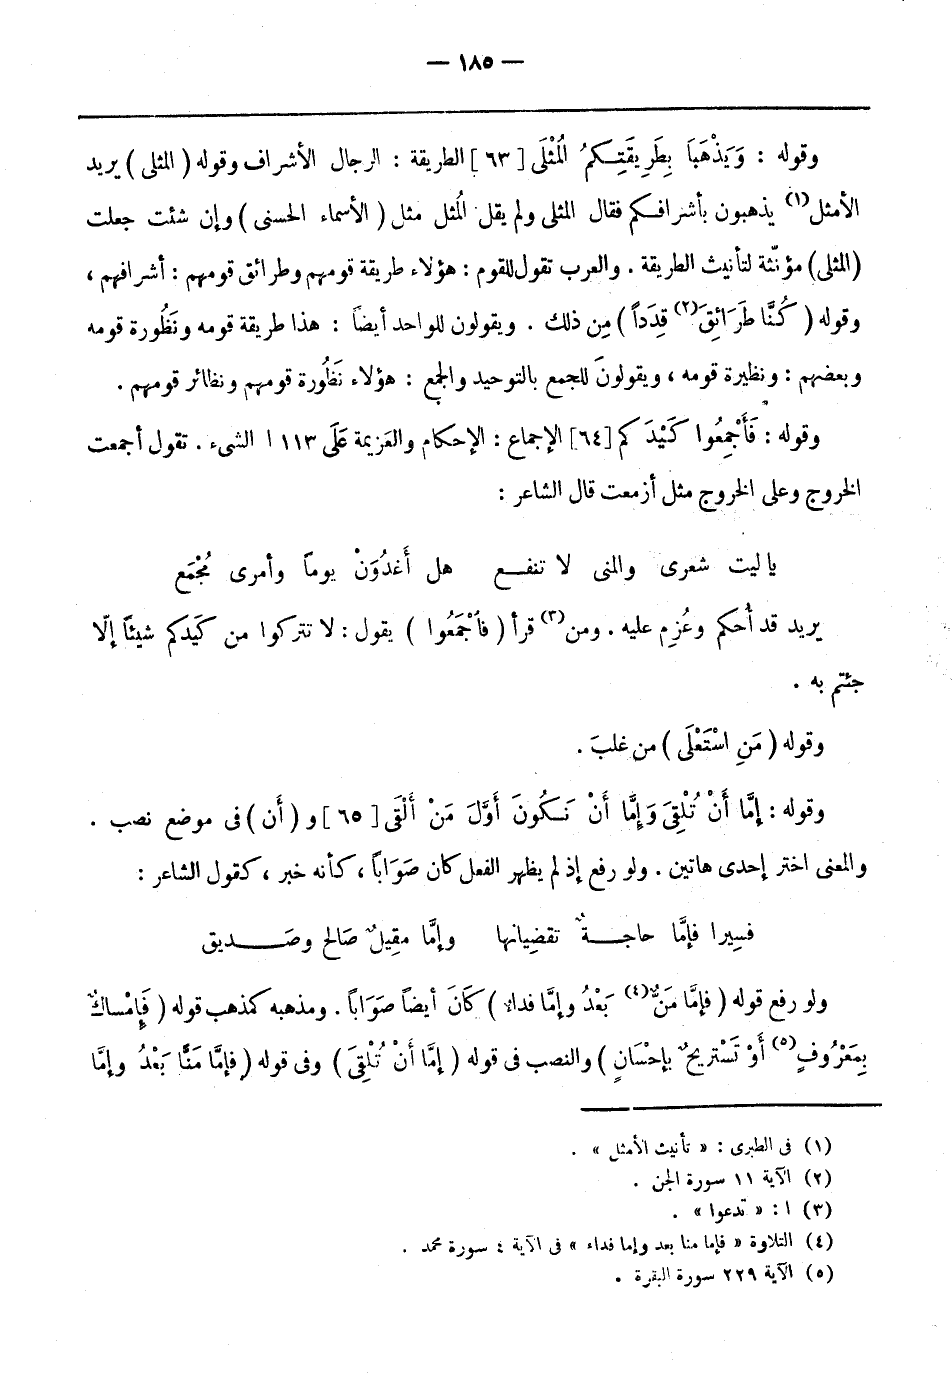 — ١٨٥ —
وقوله : وَيَذْهَبَا بِطَرِيقَتِكمُ المُثْلَى [٦٣] الطريقة : الرجال الأشراف وقوله ( المثلى ) يريد
الأمثل(١) يذهبون بأشرافكم فقال المثلى ولم يقل المُثل مثل ( الأسماء الحسنى ) وإن شئت جعلت
(المثلى) مؤنّثة لتأنيث الطريقة . والعرب تقول للقوم : هؤلاء طريقة قومهم وطرائق قومهم : أشرافهم ،
وقوله ( كُنَّا طَرَائِقَ(٢) قِدَداً ) مِن ذلك . ويقولون للواحد أيضاً : هذا طريقة قومه ونَظُورة قومه
وبعضهم : ونظيرة قومه ، ويقولونَ للجمع بالتوحيد والجمع : هؤلاء نَظُورة قومهم ونظائر قومهم .
وقوله : فَأَجْمِعُوا كَيْدَ كم [٦٤] الإجماع : الإحكام والعَزيمة عَلَى ١١٣ ا الشىء . تقول أجمعت
الخروج وعلى الخروج مثل أزمعت قال الشاعر :
يا ليت شعرى والمنى لا تنفـع هل أَغدُوَنْ يوماً وأمرى مُجْمَع
يريد قد أُحكم وعُزِم عليه . ومن(٣) قرأ ( فاجْمَعُوا ) يقول : لا تتركوا من كَيدكم شيئاً إلّا
جئتم به .
وقوله ( مَنِ اسْتَعْلَى ) من غلبَ .
وقوله : إمَّا أَنْ تُلْقِىَ وَإِمَّا أَنْ نَكُونَ أَوَّلَ مَنْ أَلْقَى [ ٦٥ ] و ( أَن ) فى موضع نصب .
والمعنى اختر إحدى هاتين . ولو رفع إذ لم يظهر الفعل كان صَوَاباً ، كأنه خبر ، كقول الشاعر :
فسِيرا فإمَّا حاجـةٌ تقضِيانها وإمَّا مقِيلٌ صَالح وصَـديق
ولو رفع قوله ( فإمَّا مَنٌّ(٤) بَعْدُ وإمَّا فداء ) كَانَ أيضاً صَوَاباً . ومذهبه كمذهب قوله ( فَإِمْساكٌ
بِمَعْرُوفٍ(٥) أَوْ تَسْتَرِيحٌ بإحْسَانٍ ) والنصب فى قوله ( إمَّا أَنْ تُلْقِىَ ) وفى قوله ( فإمَّا مَنًّا بَعْدُ وإمَّا
(١) فى الطبرى : « تأنيث الأمثل » .
(٢) الآية ١١ سورة الجن .
(٣) ا : « تدعوا » .
(٤) التلاوة « فإما منا بعد وإما فداء » فى الآية ٤ سورة محمد .
(٥) الآية ٢٢٩ سورة البقرة .